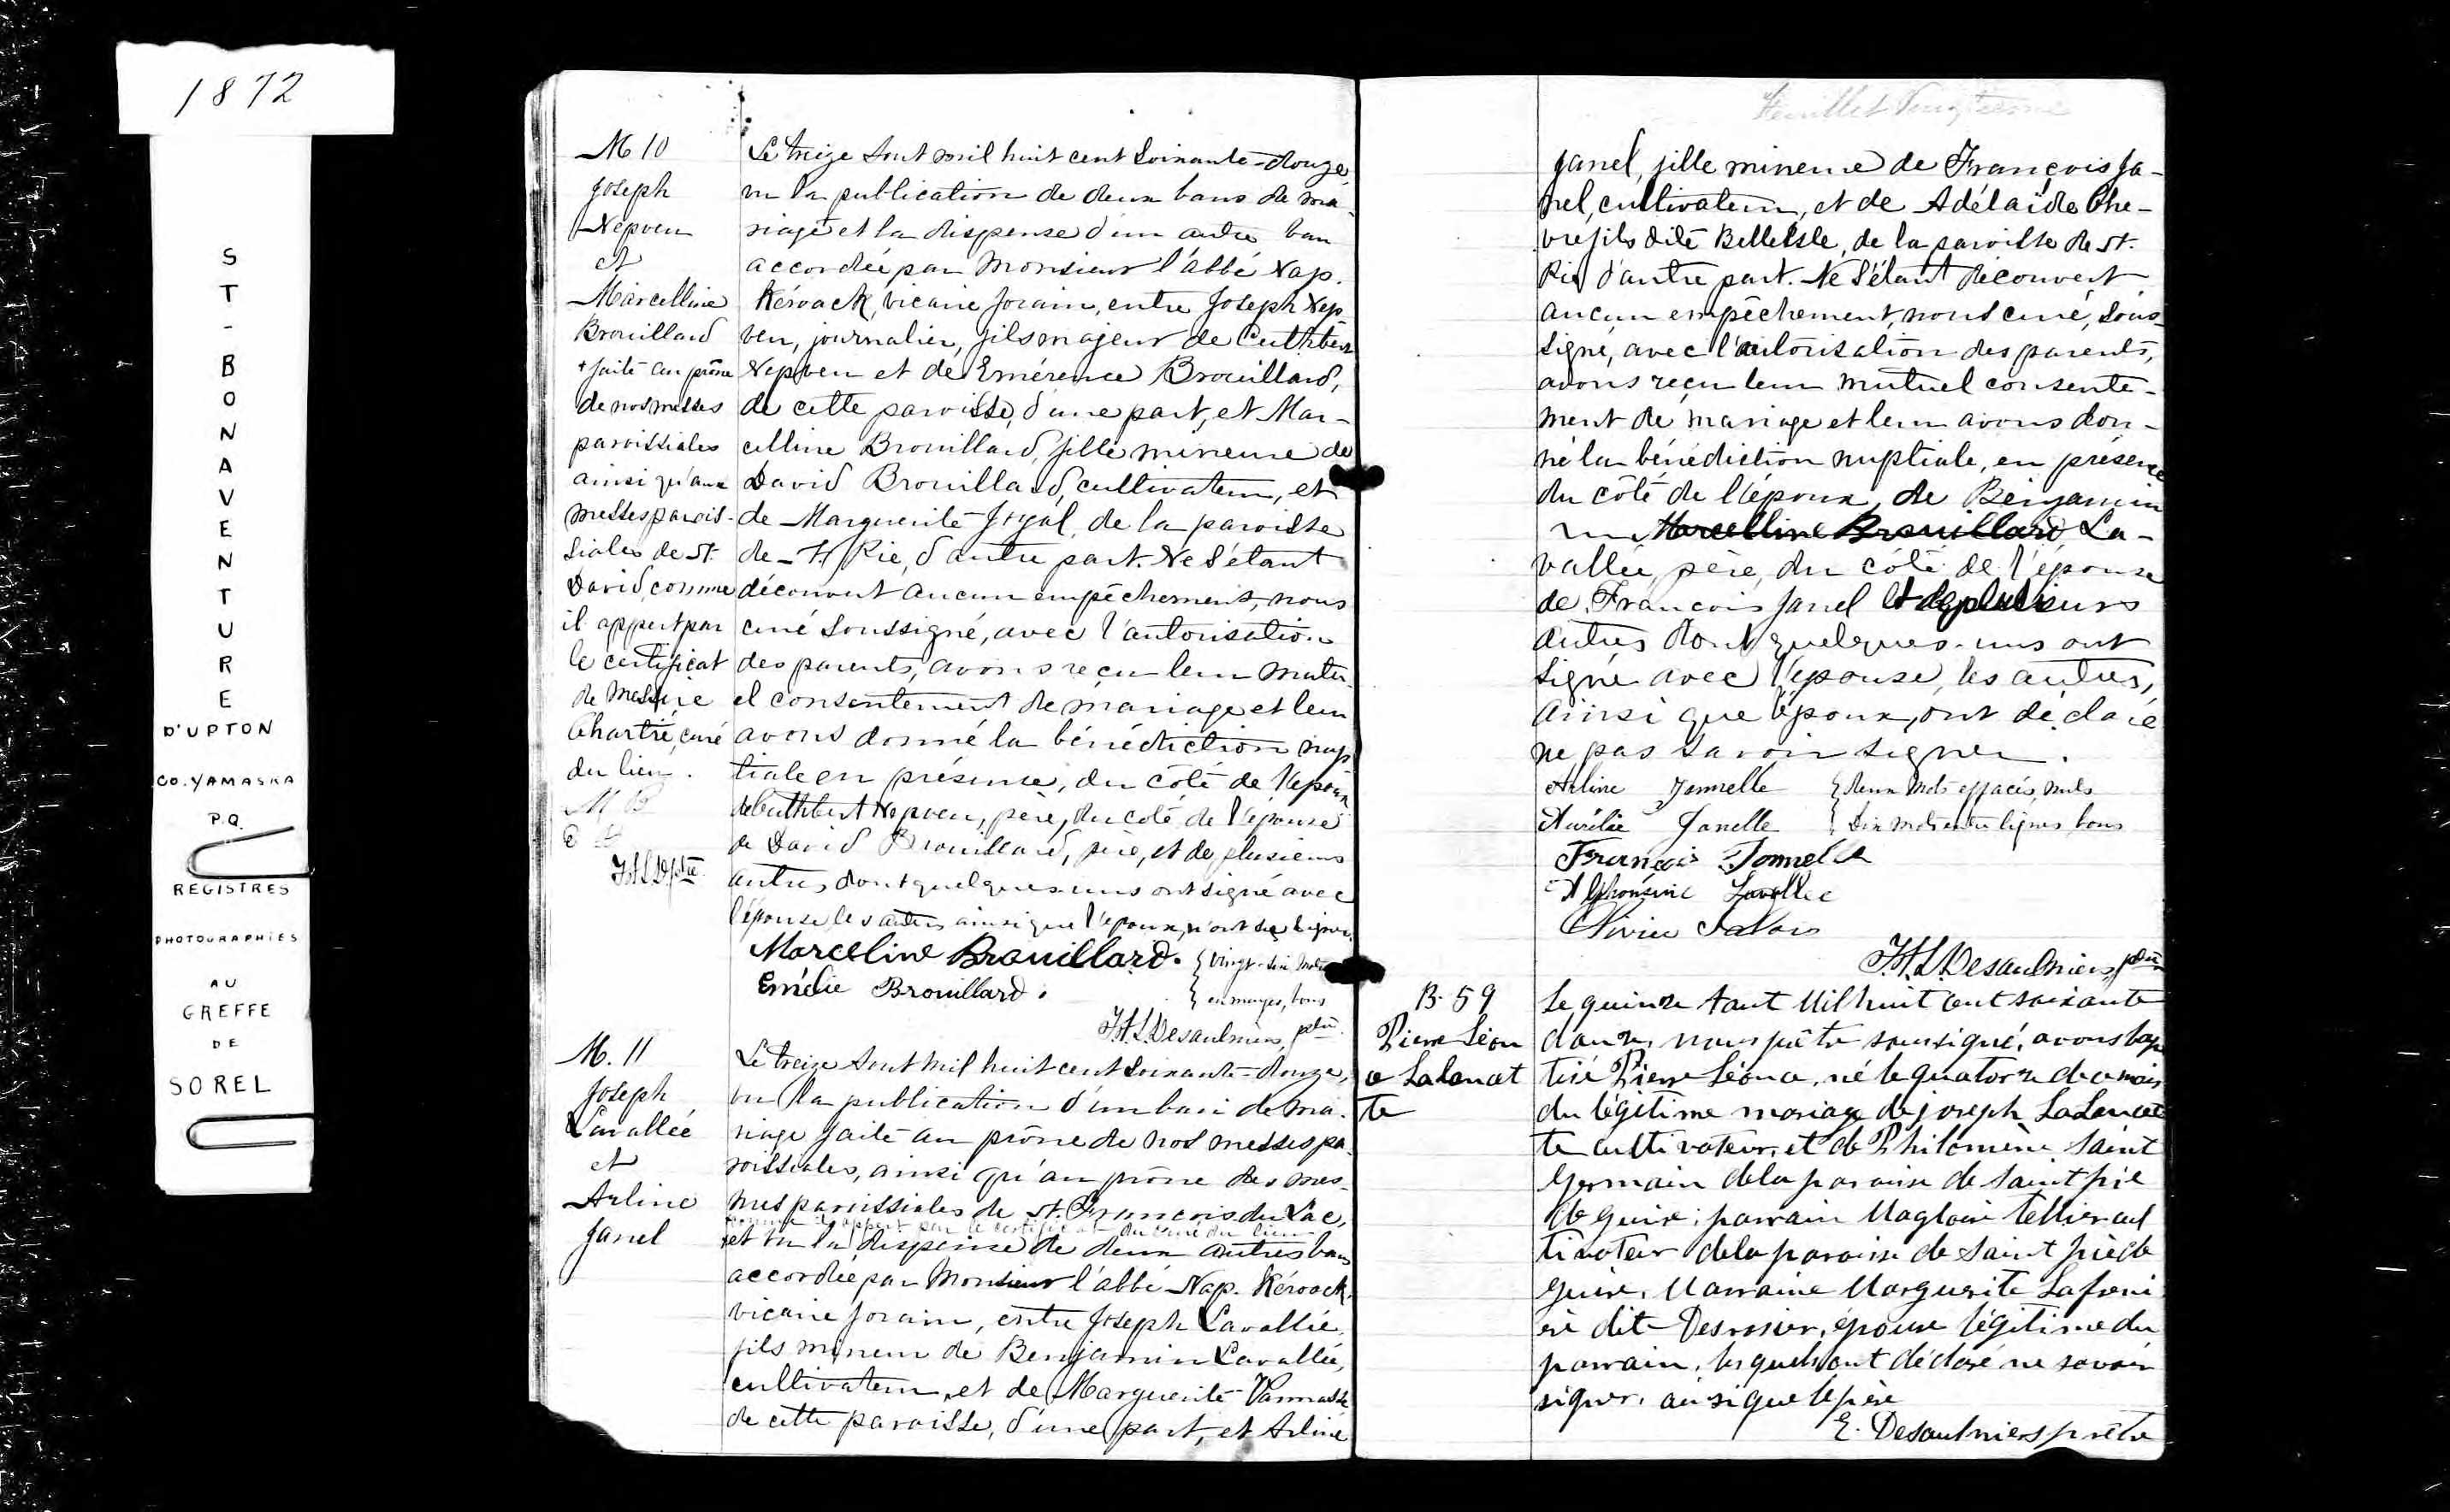 1872
ST-BONAVENTURE
D'UPTON
CO. YAMASKA
P.Q.
REGISTRES
PHOTOGRAPHIES
AU
GREFFE
DE
SOREL
M 10
Joseph
Nepveu
et
Marcelline
Brouillard
+ faite au prône
de nos messes
paroissiales
ainsi qu'aux
messes parois-
siales de St.
David, comme
il appert par
le certificat
de Messire
Chartré, curé
du lieu.
M B
E B
Le treize Aout mil huit cent soixante-douze,
vu la publication de deux bans de ma-
riage et la dispense d'un autre ban
accordée par Monsieur l'abbé Nap.
Kéroack, vicaire forain, entre Joseph Nep-
veu, journalier, fils majeur de Cuthbert
Nepveu et de Emérence Brouillard,
de cette paroisse, d'une part, et Mar-
celline Brouillard, fille mineure de
David Brouillard, cultivateur, et
de Marguerite Joyal, de la paroisse
de St Pie, d'autre part. Ne s'étant
découvert aucun empêchement, nous
curé soussigné, avec l'autorisation
des parents, avons reçu leur mutu-
el consentement de mariage et leur
avons donné la bénédiction nup-
tiale en présence, du côté de l'époux
de Cuthbert Nepveu, père, du côté de l'épouse
de David Brouillard, père, et de plusieurs
autres dont quelques-uns ont signé avec
l'épouse les autres ainsi que l'époux, n'ont su signer.
Marceline Brouillard.
Emélie Brouillard.
{ Vingt-six mots
{ en marges, bons
J.H.L. Desaulniers, ptre
M. 11
Joseph
Lavallée
et
Arline
Janel
Le treize Aout mil huit cent soixante-douze,
vu la publication d'un ban de ma-
riage faite au prône de nos messes pa-
roissiales, ainsi qu'au prône des mes-
mes paroissiales de St. François du Lac,
comme il appert par le certificat du curé du lieu
et vu la dispense de deux autres bans
accordée par Monsieur l'abbé Nap. Kéroack,
vicaire forain, entre Joseph Lavallée,
fils mineur de Benjamin Lavallée,
cultivateur, et de Marguerite Vannasse
de cette paroisse, d'une part, et Arline
Feuillet
Janel, fille mineure de François Ja-
nel, cultivateur, et de Adélaïde Che-
vrefils dite BelleIsle, de la paroisse de St.
Pie d'autre part. Ne s'étant découvert
aucun empêchement, nous curé, sous-
signé, avec l'autorisation des parents,
avons reçu leur mutuel consente-
ment de mariage et leur avons don-
né la bénédiction nuptiale, en présence
du côté de l'époux, de Benjamin
Marcelline Brouillard La-
vallée, père, du côté de l'épouse
de François Janel et de plusieurs
autres dont quelques-uns ont
signé avec l'épouse, les autres,
ainsi que l'époux, ont déclaré
ne pas savoir signer.
Arline Jannelle { deux mots effacés, nuls
Aurélie Janelle { Dix mots entre lignes, bons
François Jannelle
Alphonsine Lavallee
J.H.L. Desaulniers, ptre
B. 59
Pierre Léon
ce Lalancet
te
Le quinze Aout Mil huit cent soixante
douze, nous prêtre soussigné, avons bap
tisé Pierre Léonce, né le quatorze de ce mois
du légitime mariage de joseph LaLancet
te cultivateur, et de Philomène Saint
Germain de la paroisse de Saint pie
de Guire; parrain Magloire Tellier cul
tivateur de la paroisse de Saint pie de
guire, Marraine Marguerite Lafreni
ère dit Desrosier, épouse légitime du
parrain, lesquels ont déclaré ne savoir
signer, ainsi que le père
E. Desaulniers prêtre